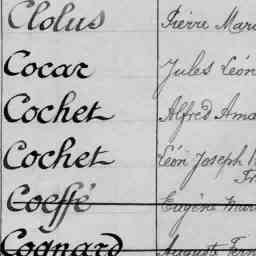 Clolus Pierre Mari
Cocar Jules Léon
Cochet Alfred Ama
Cochet Léon Joseph
Coeffé Eugène
Cognard Auguste